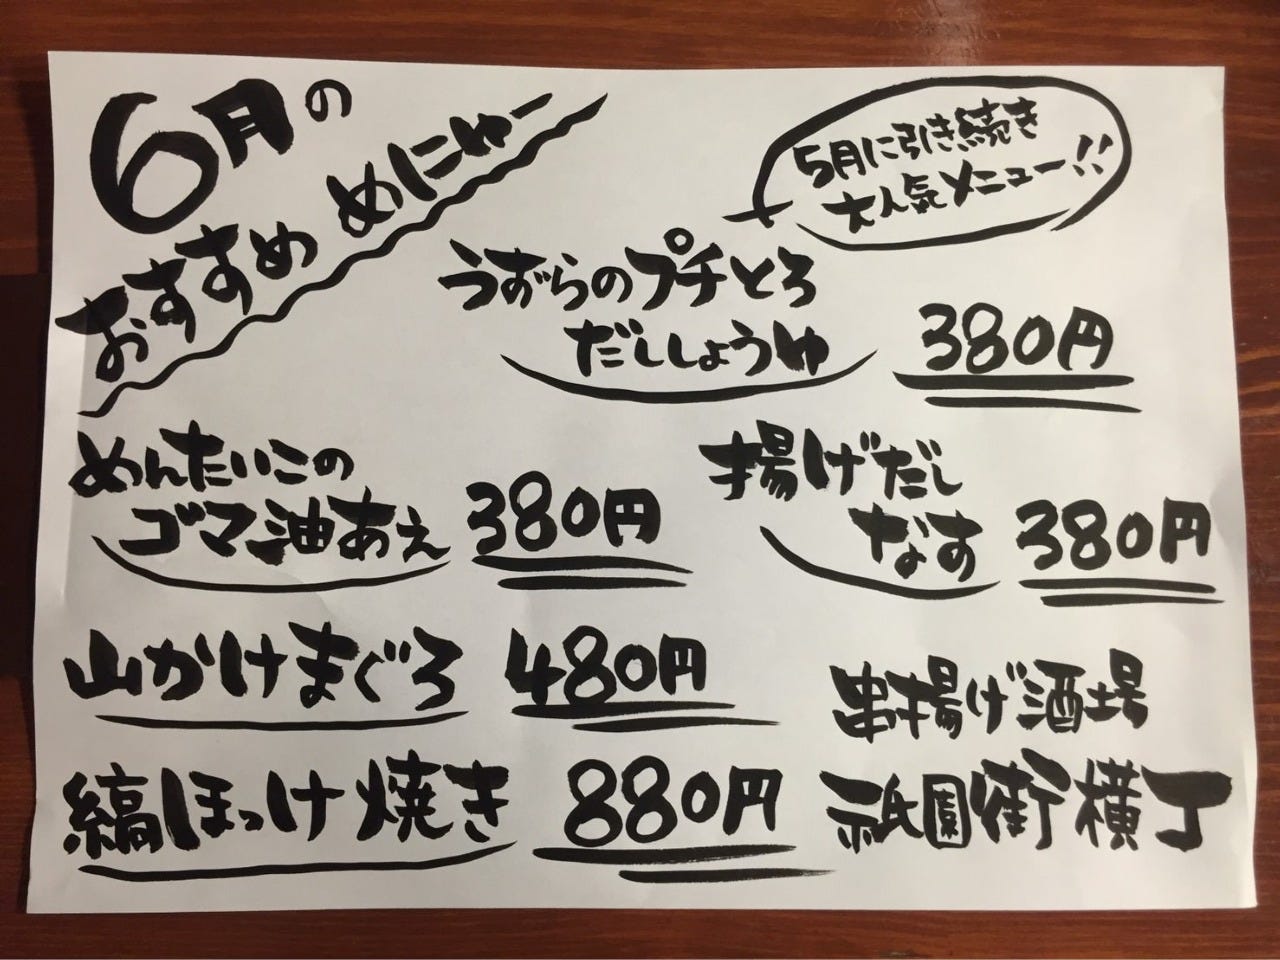 6月の
おすすめ めにゅー
5月に引き続き
大人気メニュー!!
うずらのプチとろ
だししょうゆ 380円
めんたいこの
ゴマ油あえ 380円
揚げだし
なす 380円
山かけまぐろ 480円
縞ほっけ焼き 880円
串揚げ酒場
祇園街横丁